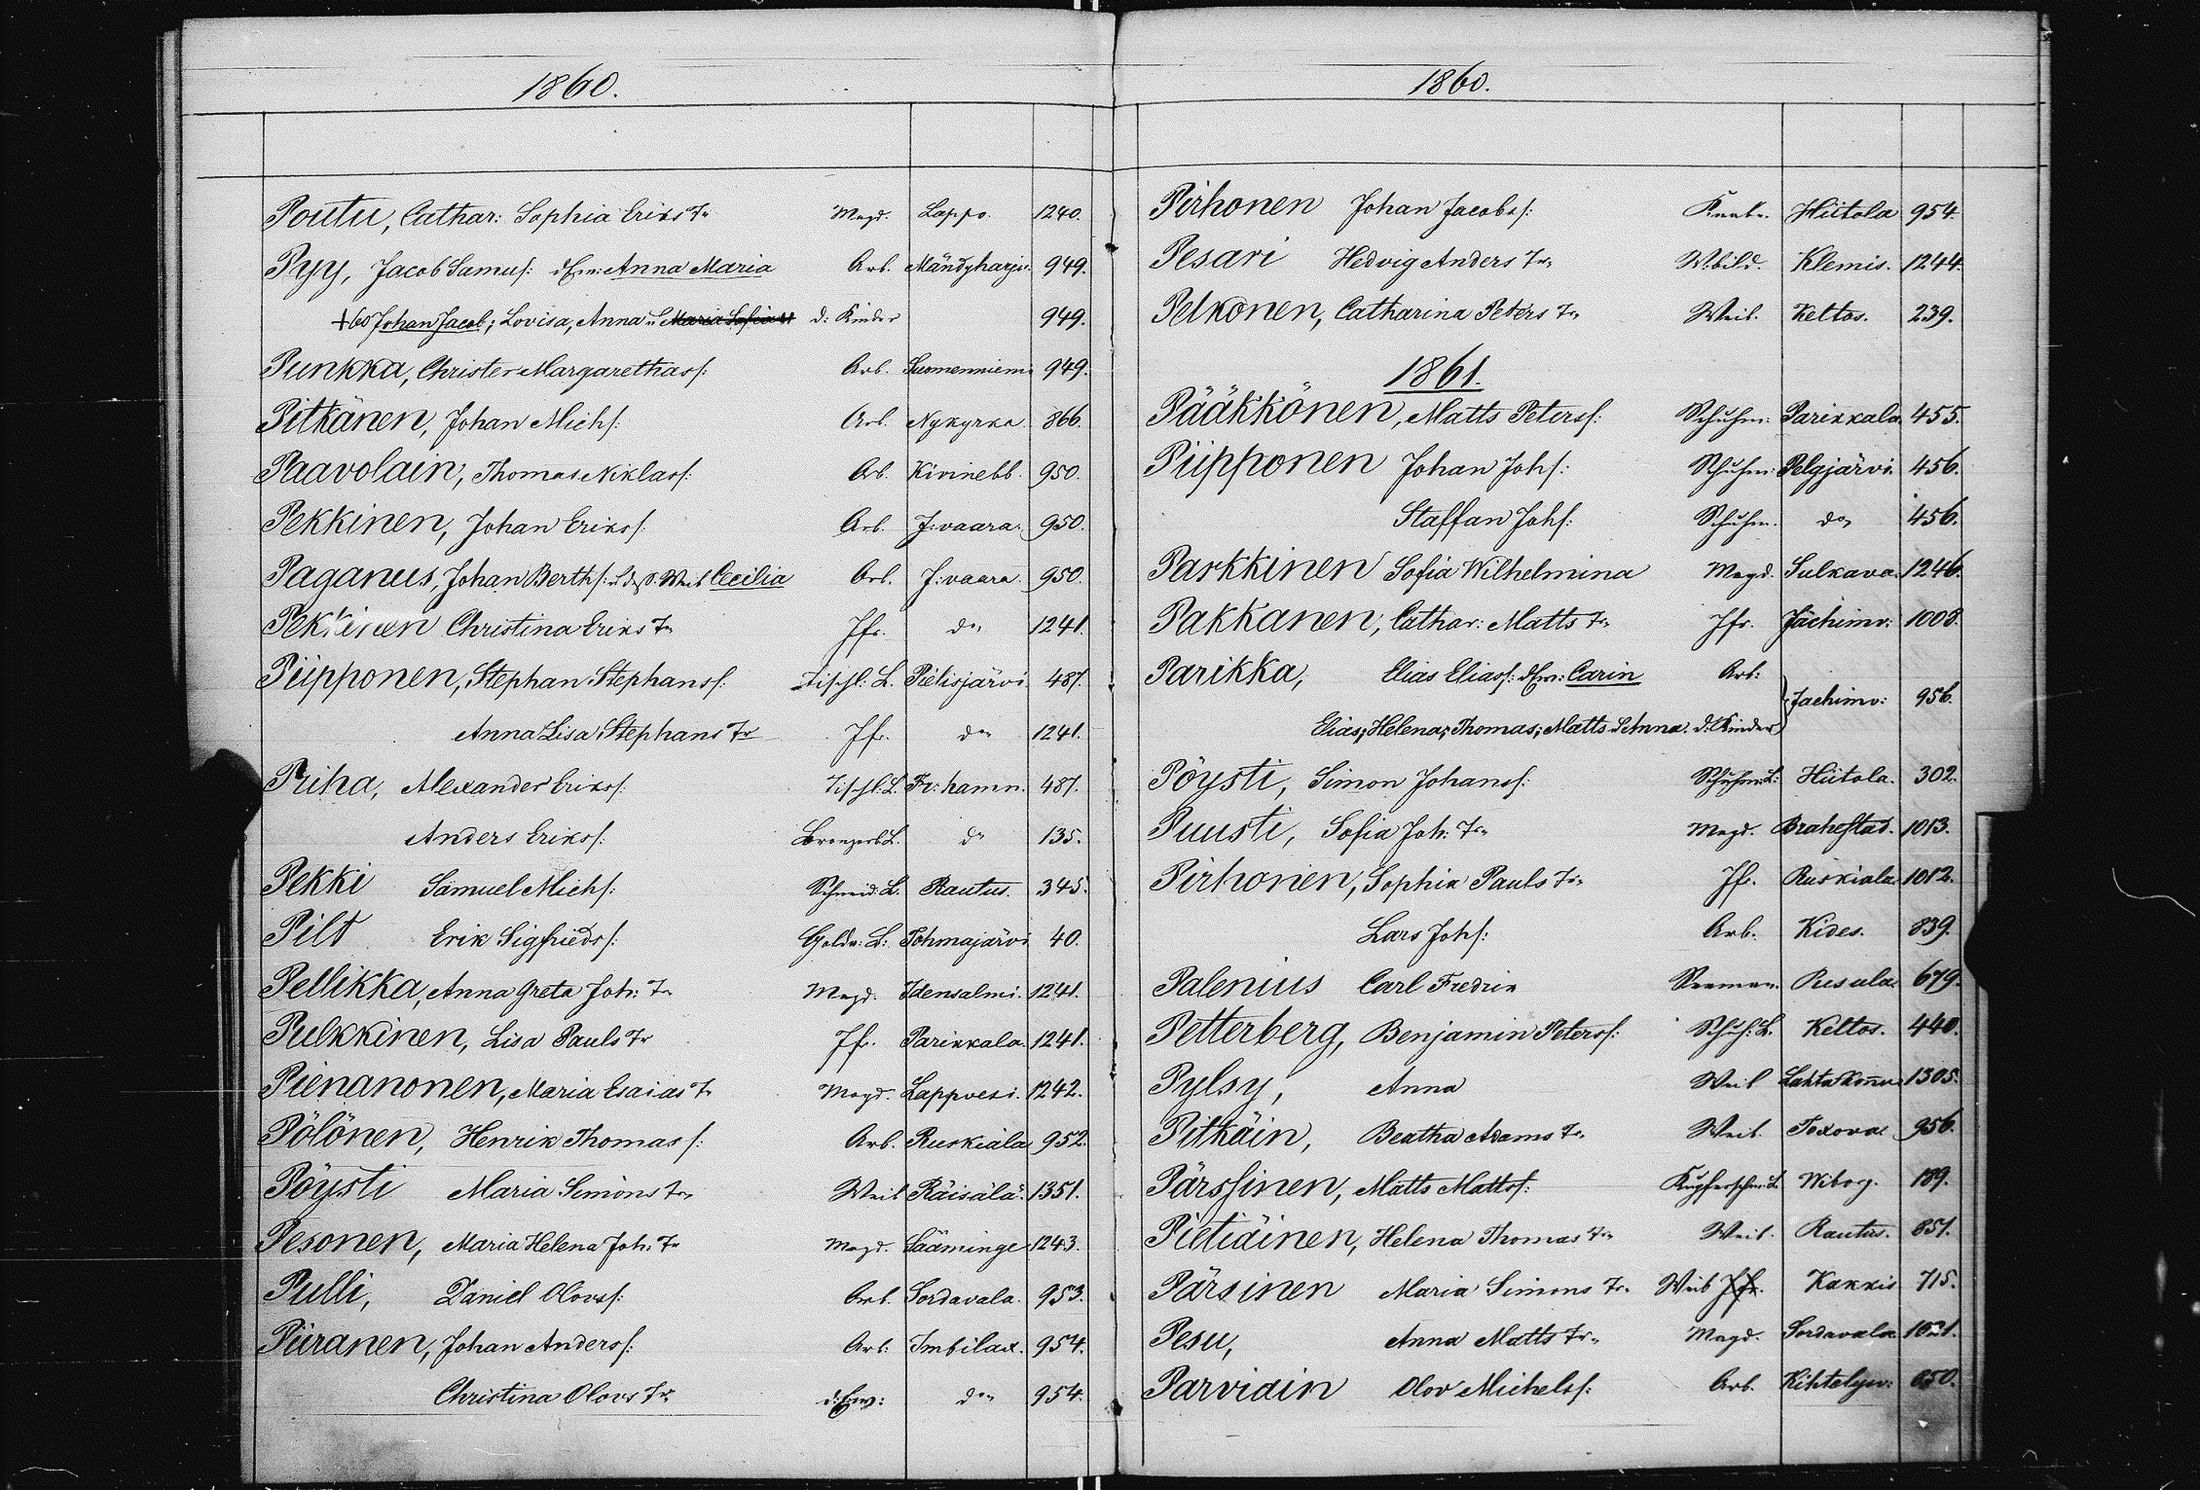 1860.
Poutu, Cathar: Sophia Eriks Tr Magd. Lappo. 1240.
Pyy, Jacob Samus: d. Ew: Anna Maria Arb. Mändyharju. 949.
+60 Johan Jacob; Lovisa, Anna u. Maria Sofia d: Kinder 949.
Punkka, Christer Margarethas/: Arb. Suomenniem. 949.
Pitkänen, Johan Mich/: Arb. Nykyrka 866.
Paavolain, Thomas Niklas/: Arb. Kivinebb. 950.
Pekkinen, Johan Eriks/: Arb. J:vaara. 950.
Paganus, Johan Berth/: u. Weib Cecilia Arb. J:vaara 950.
Pekkinen Christina Eriks Tr Jfr. do 1241.
Piipponen, Stephan Stephans/: Tischl: L. Pielisjärvi 487.
Anna Lisa Stephans Tr Jfr. do 1241.
Priha, Alexander Eriks/: Tischl: L. Fr: hamn. 487.
Anders Eriks/: Bronzearb L. do 135.
Pekki Samuel Mich/: Schneid: L. Rautus. 345.
Pilt Erik Sigfrieds/: Golda: L: Tohmajärvi 40.
Pellikka, Anna Greta Joh: Tr Magd. Idensalmi. 1241.
Pulkkinen, Lisa Pauls Tr Jfr. Parikkala. 1241.
Pienanonen, Maria Esaias Tr Magd. Lappvesi. 1242.
Pölönen, Henrik Thomas/: Arb. Ruskiala 952.
Pöysti Maria Simons Tr Weib Räisälä. 1351.
Pesonen, Maria Helena Joh: Tr Magd. Sääminge 1243.
Pulli, Daniel Olovs/: Arb. Sordavala. 953.
Piiranen, Johan Anders/: Arb: Imbilax. 954.
Christina Olovs Tr d: Ew: do 954.
1860.
Pirhonen Johan Jacobs/: Knabe. Hiitola 954.
Pesari Hedvig Anders Tr Wbild. Klemis. 1244.
Pelkonen, Catharina Peters Tr Weib. Keltos. 239.
1861.
Pääkkönen, Matts Peters/: Schuhm: Parikkala. 455.
Piipponen Johan Joh/: Schuhm: Pelgjärvi. 456.
Staffan Joh/: Schuhm. do 456.
Parkkinen Sofia Wilhelmina Magd. Sulkava. 1246.
Pakkanen, Cathar: Matts Tr Jfr. Jächimv: 1008.
Parikka, Elias Elias/: d. Ew: Carin Arb:
Jachimv: 956.
Elias; Helena; Thomas; Matts u. Anna. d. Kinder
Pöysti, Simon Johans/: Schuhm: L: Hiitola. 302.
Puusti, Sofia Joh: Tr Magd. Brahestad. 1013.
Pirhonen, Sophia Pauls Tr Jfr. Ruskiala 1012.
Lars Joh/: Arb. Kides. 839.
Palenius Carl Fredrik Seeman. Resula. 679.
Petterberg, Benjamin Peters/: Schuh: L. Keltos. 440.
Pylsy, Anna Weib 1305.
Pitkäin, Beatha Adams Tr Weib. Toxova 956.
Pärssinen, Matts Matts/: Kupferschm: L. Wiborg. 189.
Pietiäinen, Helena Thomas Tr Weib. Rautus. 651.
Pärsinen Maria Simons Tr Weib Jfr. Kakkis 715.
Pesu, Anna Matts Tr Magd. Sordavala. 1021.
Parviain Olov Michels/: Arb. Kihtelysv: 650.